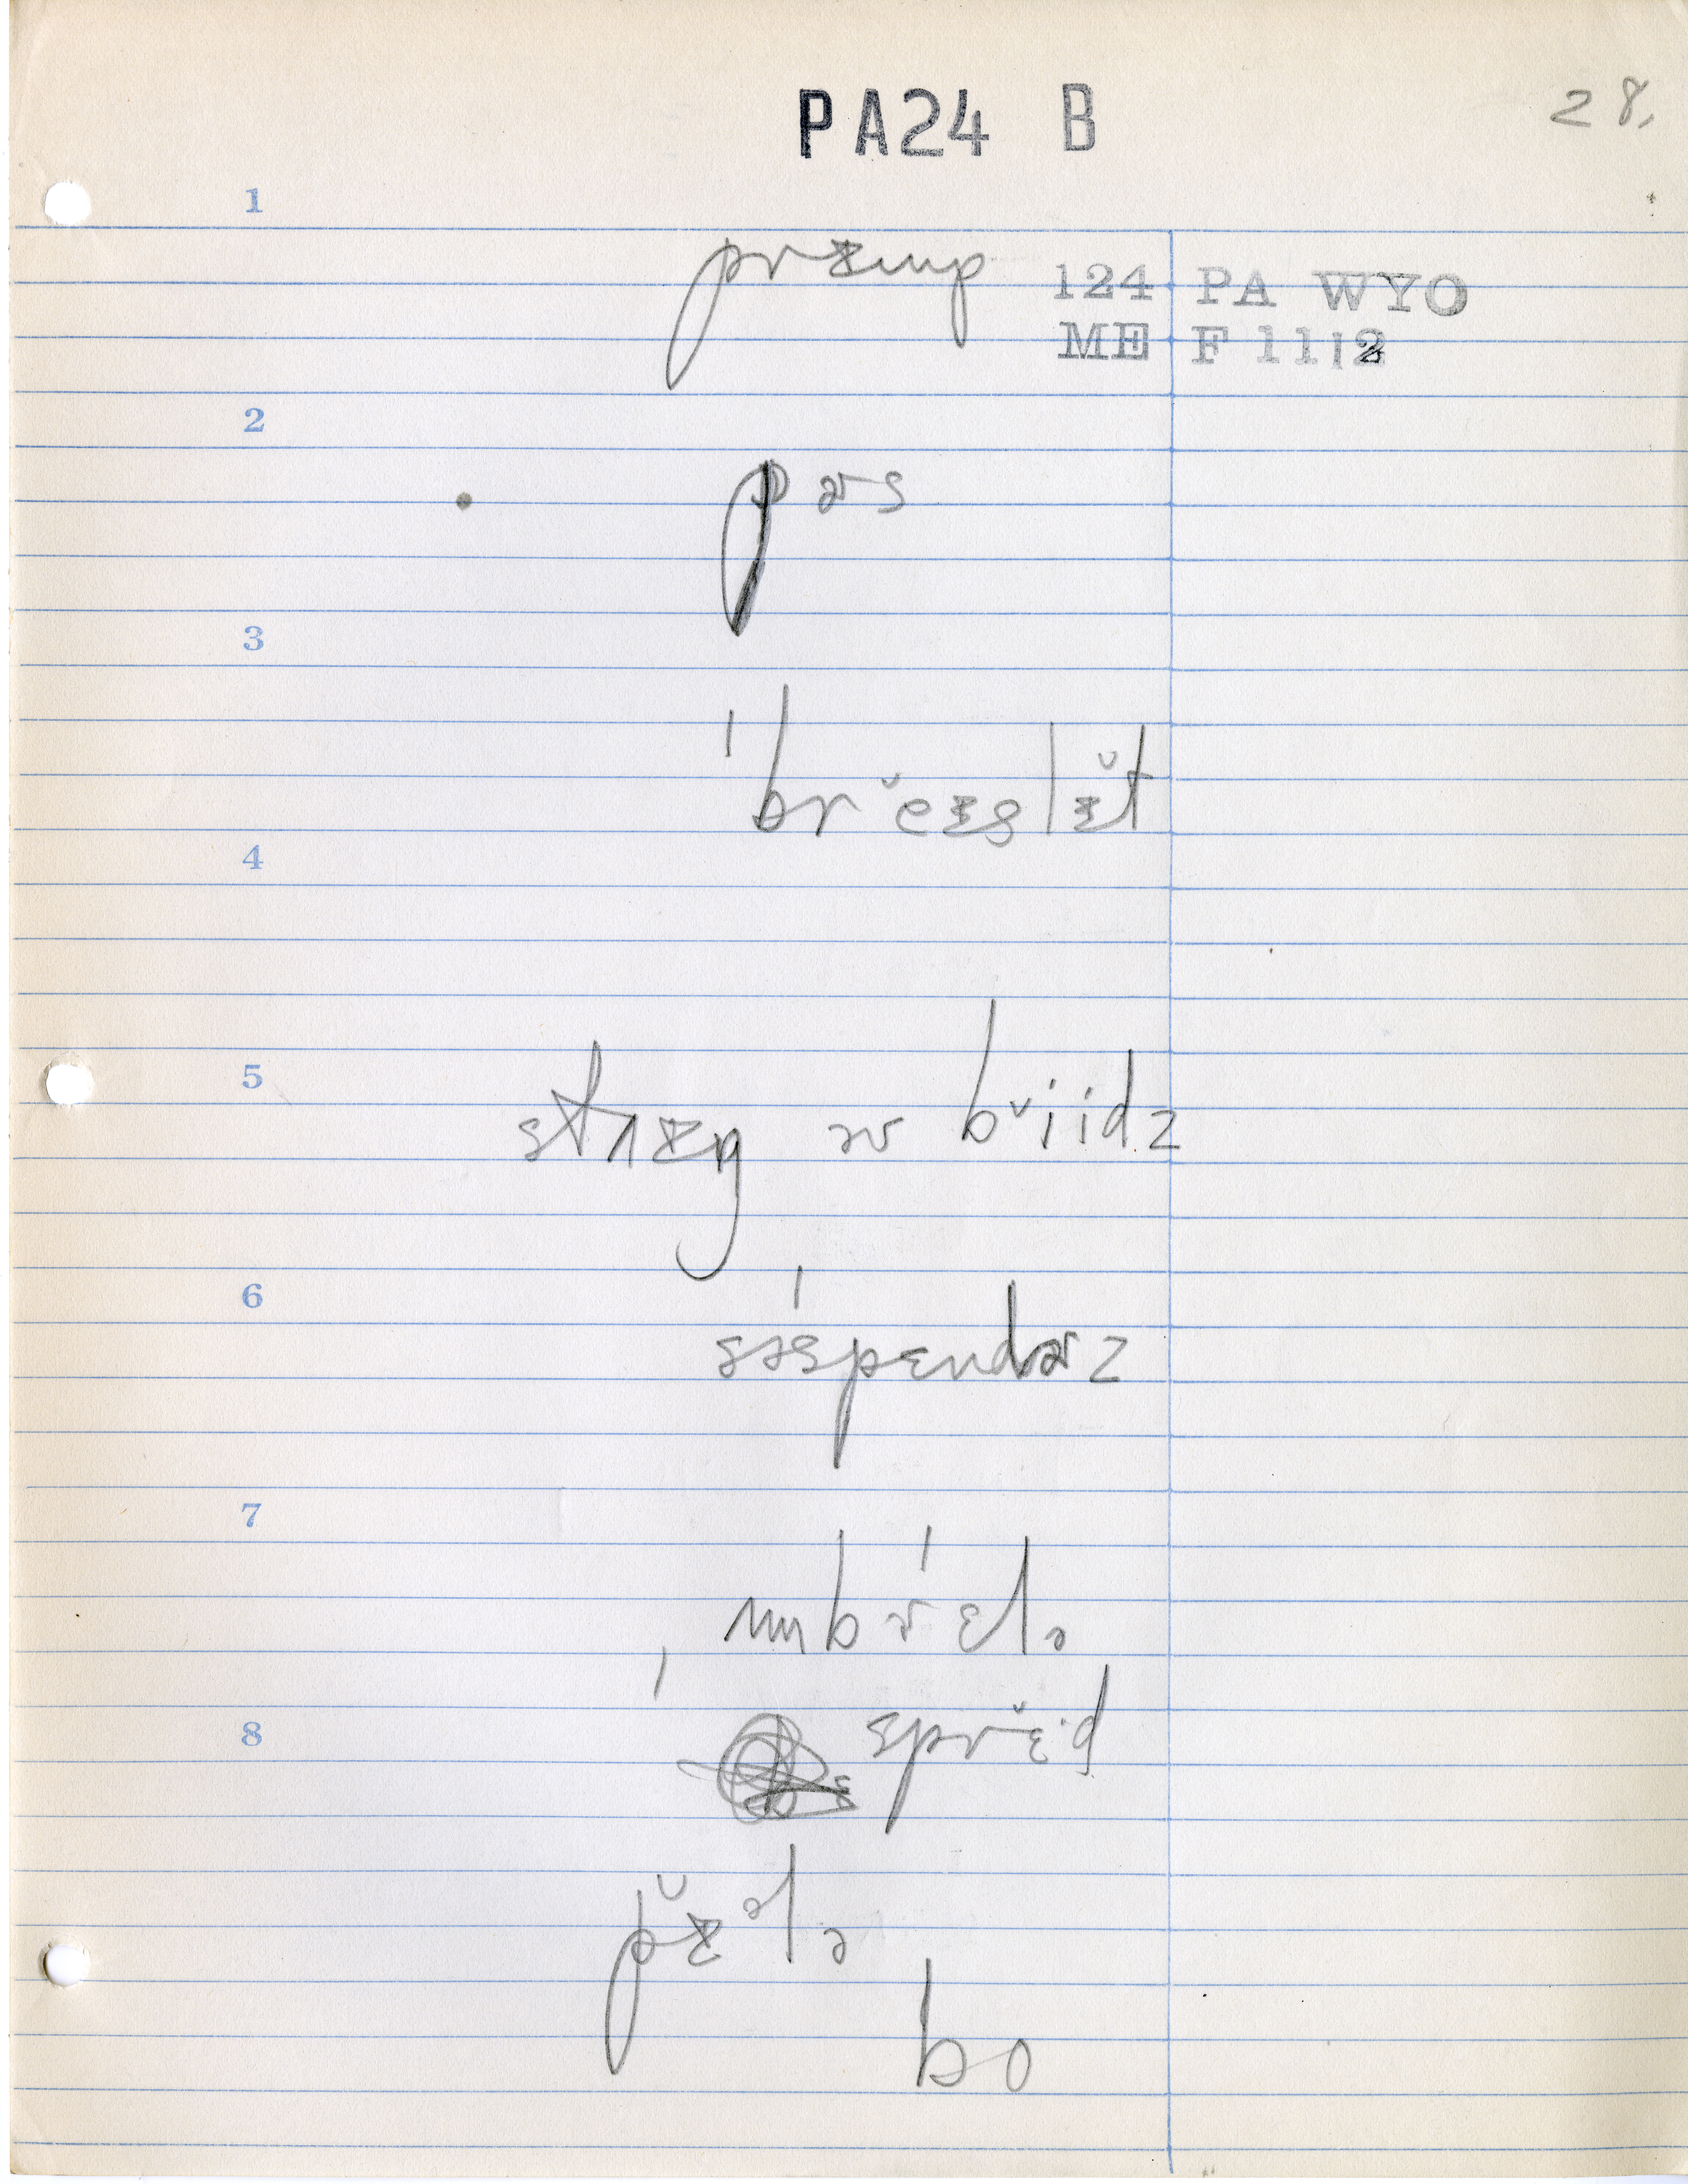 PA24 B
28.
1
prᵻmp
124 PA WYO
ME F 1112
2
pɚs
3
ˈbrĕᵻslᵻ̆t
4
5
strᵻŋ əv briidz
6
səˈspɛndɚz
7
ʌmˈbrɛlə
8
ˈsprĕd
pᵻ̆ələ
bo